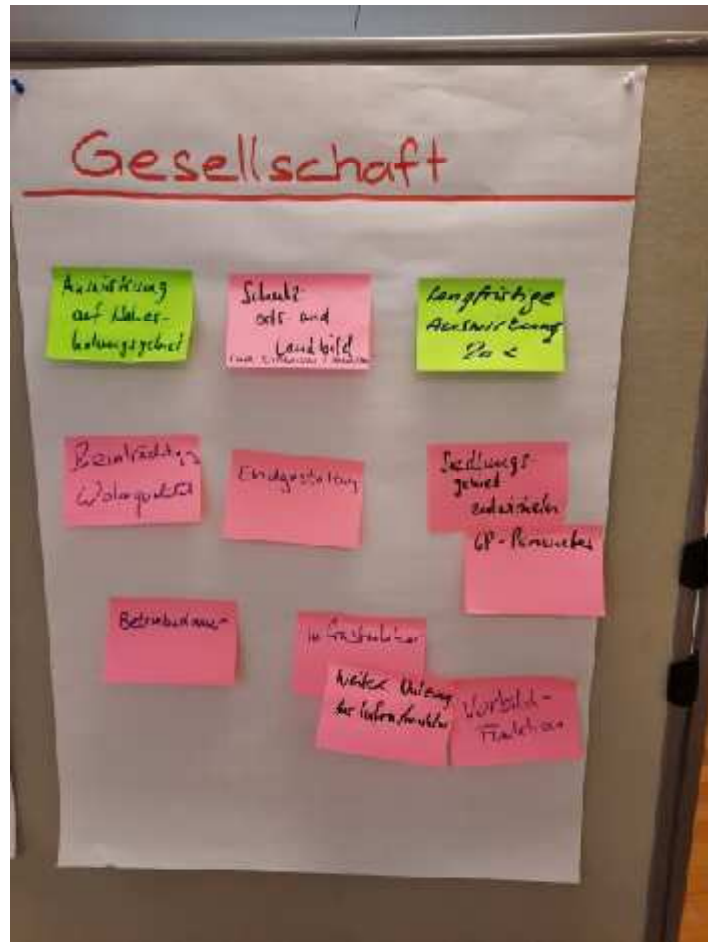 Gesellschaft
Auswirkung
auf Naher-
holungsgebiet
Schutz
Orts und
Landbild
Langfristige
Auswirkung
Beeinträchtig
Wohnqualität
Endgestaltung
Siedlungs-
gebiet
entwickeln
GP-Perimeter
Betriebsdauer
Weiter Nutzung
der Infrastruktur
Vorbild-
Funktion